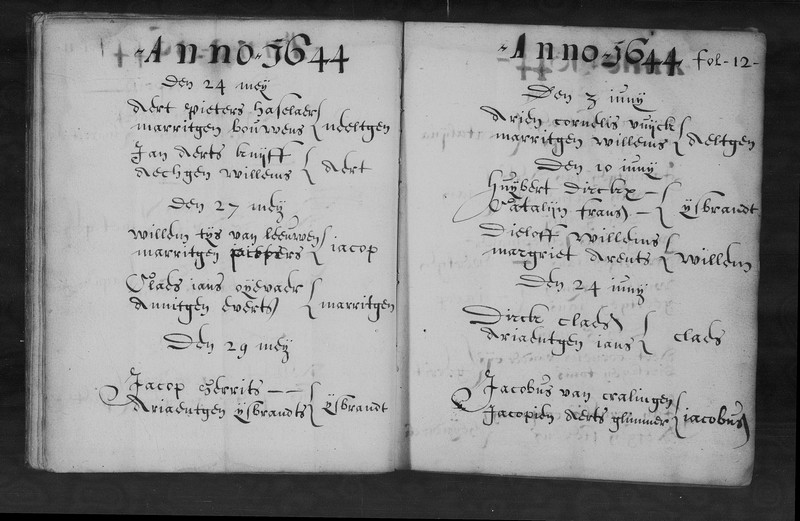 Anno 1644
Den 24 meij
Aert Pieters haselaer
marritgen bouwens { neeltgen
Jan Aerts knijff
Aechgen willems { Aert
Den 27 meij
willem tijs van leeuwen
marritgen { iacop
Claes ians oijevaer
Annitgen everts { marritgen
Den 29 meij
Jacop gerrits
Ariaentgen ijsbrandts { ijsbrandt
Anno 1644 fol-12-
Den 3 iunij
Arien cornelis vuijck
marritgen willems { Aeltgen
Den 10 iunij
huijbert Dirckx
Catalijn frans { ijsbrandt
Dieloff willems
margriet Arents { willem
Den 24 iunij
Dirck claes
Ariaentgen ians { claes
Jacobus van cralingen
Jacopien Aerts glimmer { iacobus